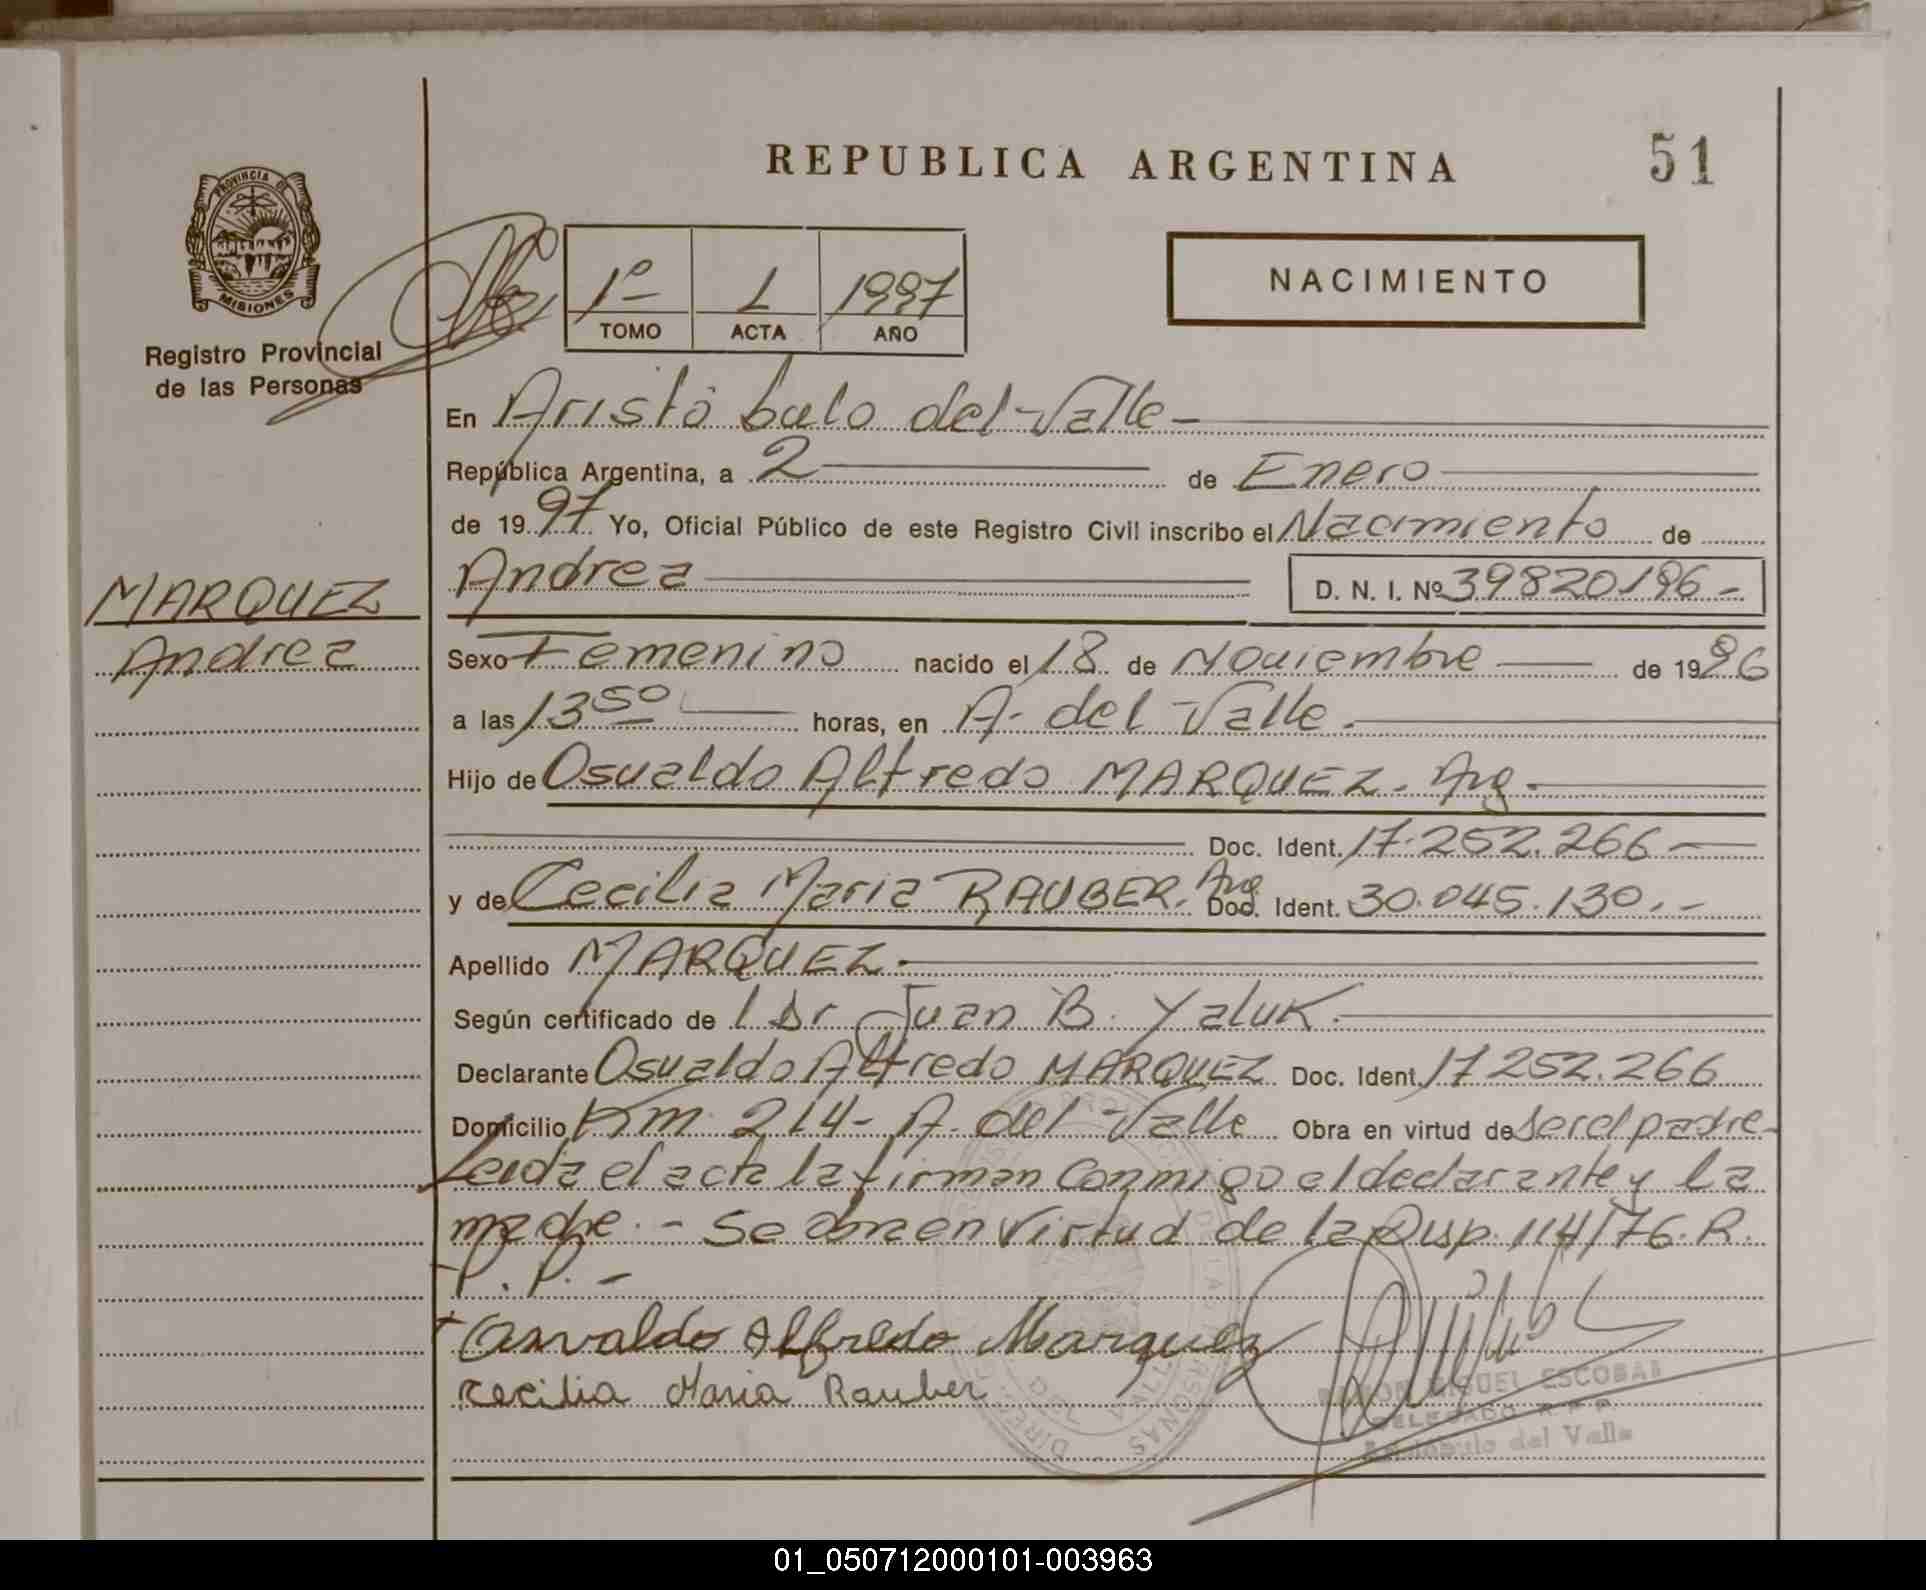 REPUBLICA ARGENTINA
51
PROVINCIA DE
MISIONES
Registro Provincial
de las Personas
1º 1 1997
TOMO ACTA AÑO
NACIMIENTO
En Aristóbulo del Valle -
República Argentina, a 2 de Enero
de 1997 Yo, Oficial Público de este Registro Civil inscribo el Nacimiento de
Andrea D. N. I. Nº 39820196 -
MARQUEZ
Andrea
Sexo Femenino nacido el 18 de Noviembre de 1996
a las 13 50 horas, en A. del Valle.
Hijo de Osvaldo Alfredo MARQUEZ. Arg.
Doc. Ident. 17.252.266 -
y de Cecilia Maria RAUBER. Arg Doc. Ident. 30.045.130. -
Apellido MARQUEZ.
Según certificado de l Dr Juan B. Yaluk.
Declarante Osvaldo Alfredo MARQUEZ Doc. Ident. 17252.266
Domicilio Km 214 - A. del Valle Obra en virtud de ser el padre -
Leida el acta la firman conmigo el declarante y la
madre. - Se obra en virtud de la Disp. 114/76. R.
P. P. -
Osvaldo Alfredo Marquez
Cecilia Maria Rauber
DEL VALLE
MIGUEL ESCOBAR
DELEGADO R. P. P.
Aristóbulo del Valle
01_050712000101-003963